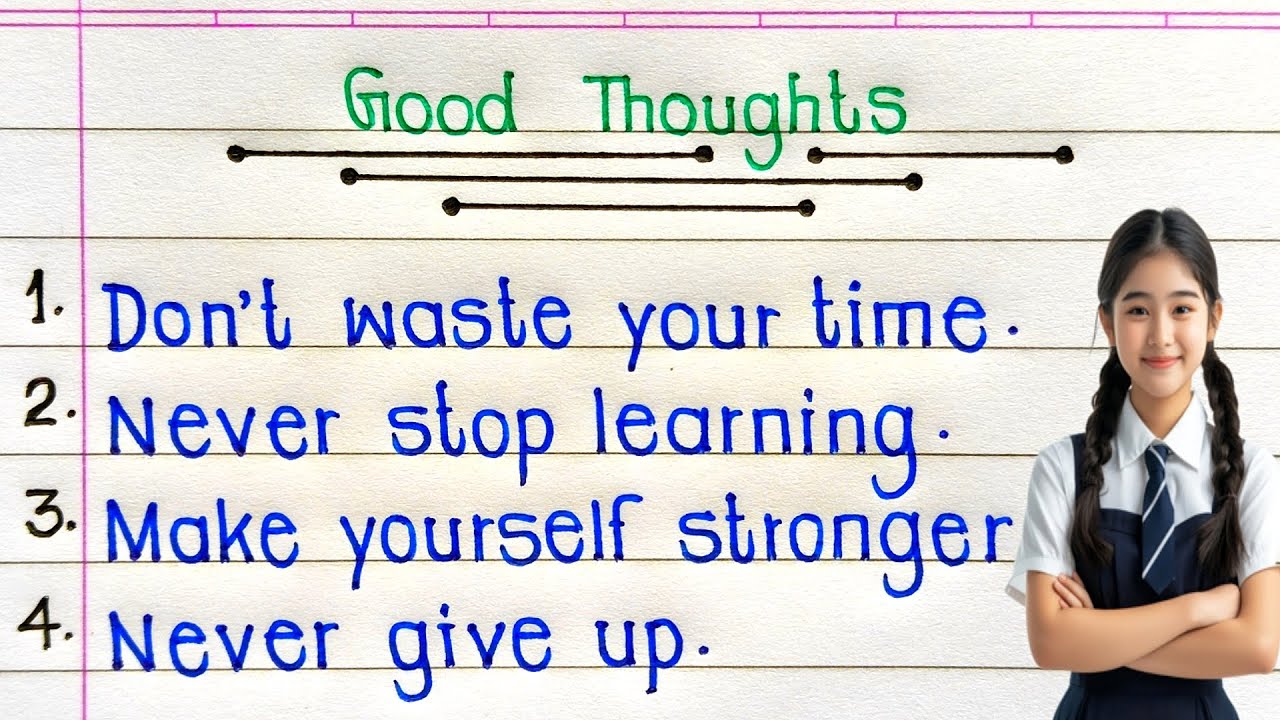 Good Thoughts
1. Don't waste your time.
2. Never stop learning.
3. Make yourself stronger
4. Never give up.